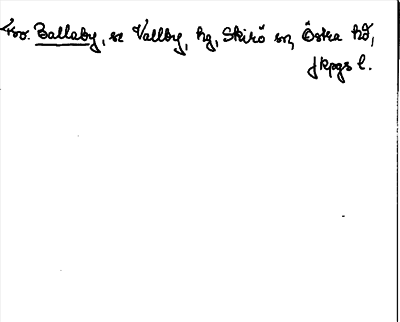 Kvo. Ballaby, se Vallby, hg, Skirö sn, Östra hd,
Jkpgs l.